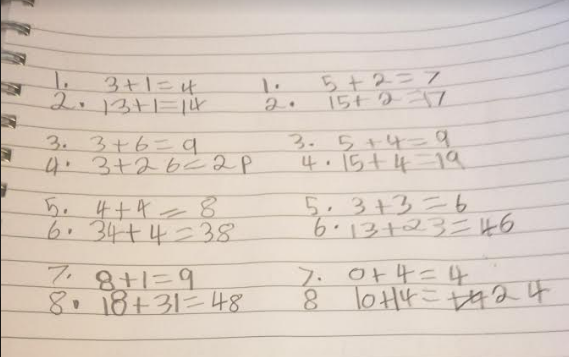 1. 3+1=4
2. 13+1=14
3. 3+6=9
4. 3+26=2P
5. 4+4=8
6. 34+4=38
7. 8+1=9
8. 18+31=48
1. 5+2=7
2. 15+2=17
3. 5+4=9
4. 15+4=19
5. 3+3=6
6. 13+23=46
7. 0+4=4
8 10+14=24